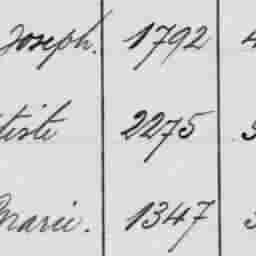 Joseph. 1792 4
tiste 2275
Marie. 1347